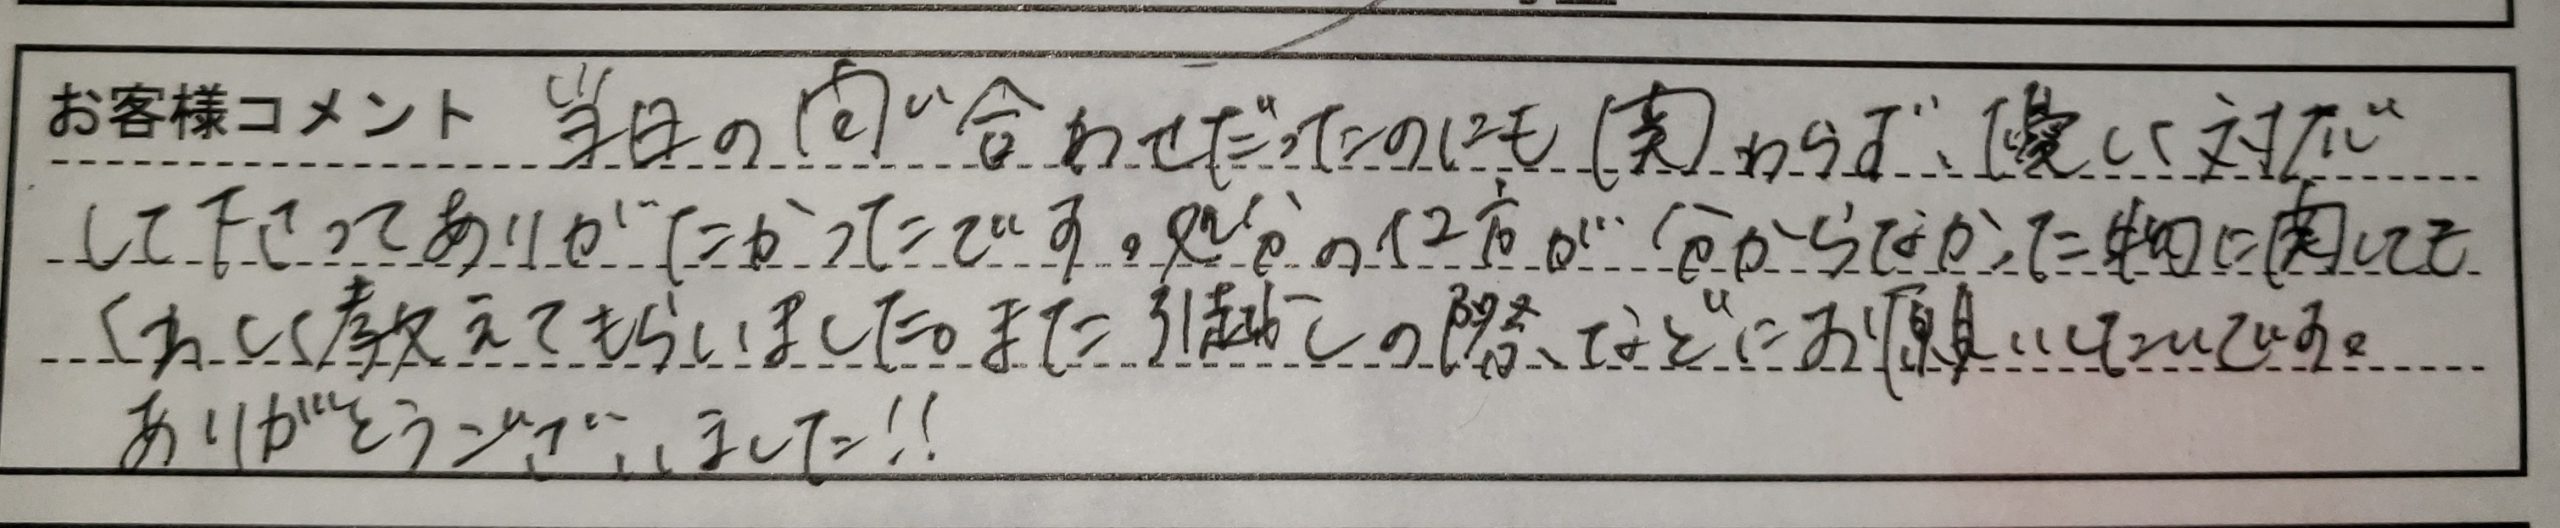 お客様コメント 当日の問い合わせだったのにも関わらず、優しく対応
して下さってありがたかったです。処分の仕方が分からなかった物に関しても
くわしく教えてもらいました。また引越しの際、などにお願いしたいです。
ありがとうございました!!